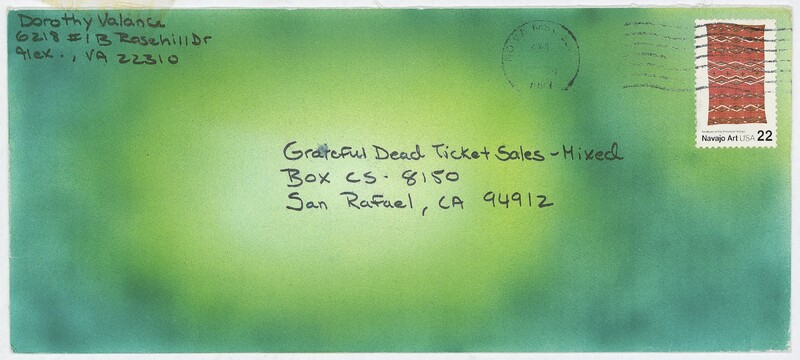 Dorothy Valance
6218 #1B Rosehill Dr
Alex., VA 22310
Grateful Dead Ticket Sales - Mixed
Box CS- 8150
San Rafael, CA 94912
Navajo Art USA 22